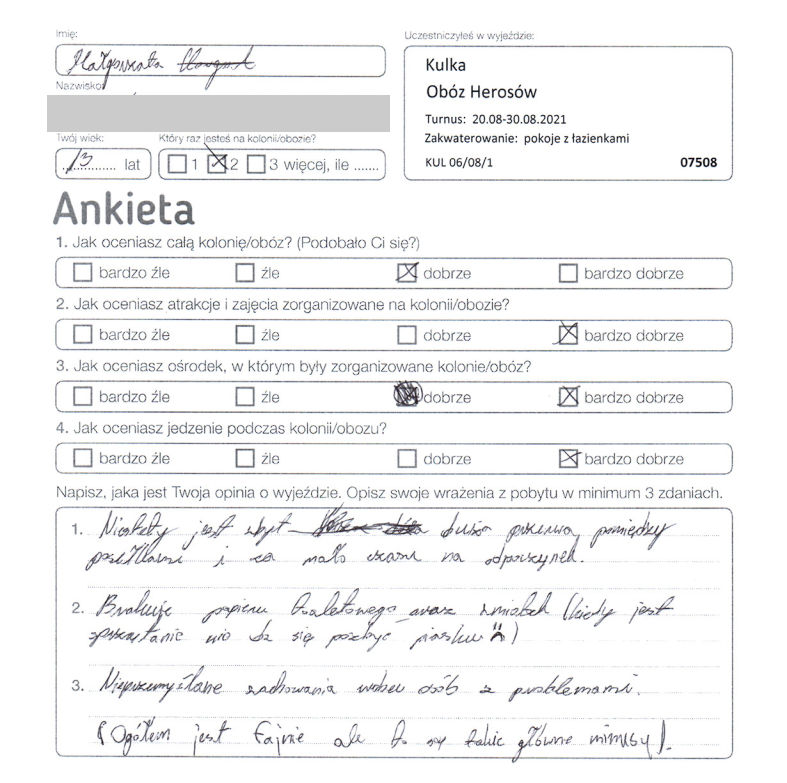 Imię:
Uczestniczyłeś w wyjeździe:
Małgorzata
Kulka
Nazwisko:
Obóz Herosów
Turnus: 20.08-30.08.2021
Twój wiek:
Który raz jesteś na kolonii/obozie?
Zakwaterowanie: pokoje z łazienkami
13 lat
1 2 3 więcej, ile .......
KUL 06/08/1
07508
Ankieta
1. Jak oceniasz całą kolonię/obóz? (Podobało Ci się?)
bardzo źle źle dobrze bardzo dobrze
2. Jak oceniasz atrakcje i zajęcia zorganizowane na kolonii/obozie?
bardzo źle źle dobrze bardzo dobrze
3. Jak oceniasz ośrodek, w którym były zorganizowane kolonie/obóz?
bardzo źle źle dobrze bardzo dobrze
4. Jak oceniasz jedzenie podczas kolonii/obozu?
bardzo źle źle dobrze bardzo dobrze
Napisz, jaka jest Twoja opinia o wyjeździe. Opisz swoje wrażenia z pobytu w minimum 3 zdaniach.
1. Niestety jest zbyt duża przerwa pomiędzy
i za mało czasu na odpoczynek.
2. Brakuje papieru toaletowego oraz zmiotek (kiedy jest
sprzątanie się pozbyć piasku )
3. Nieprzemyślane zachowania wobec osób z problemami.
(Ogółem jest fajnie ale to są takie główne minusy).